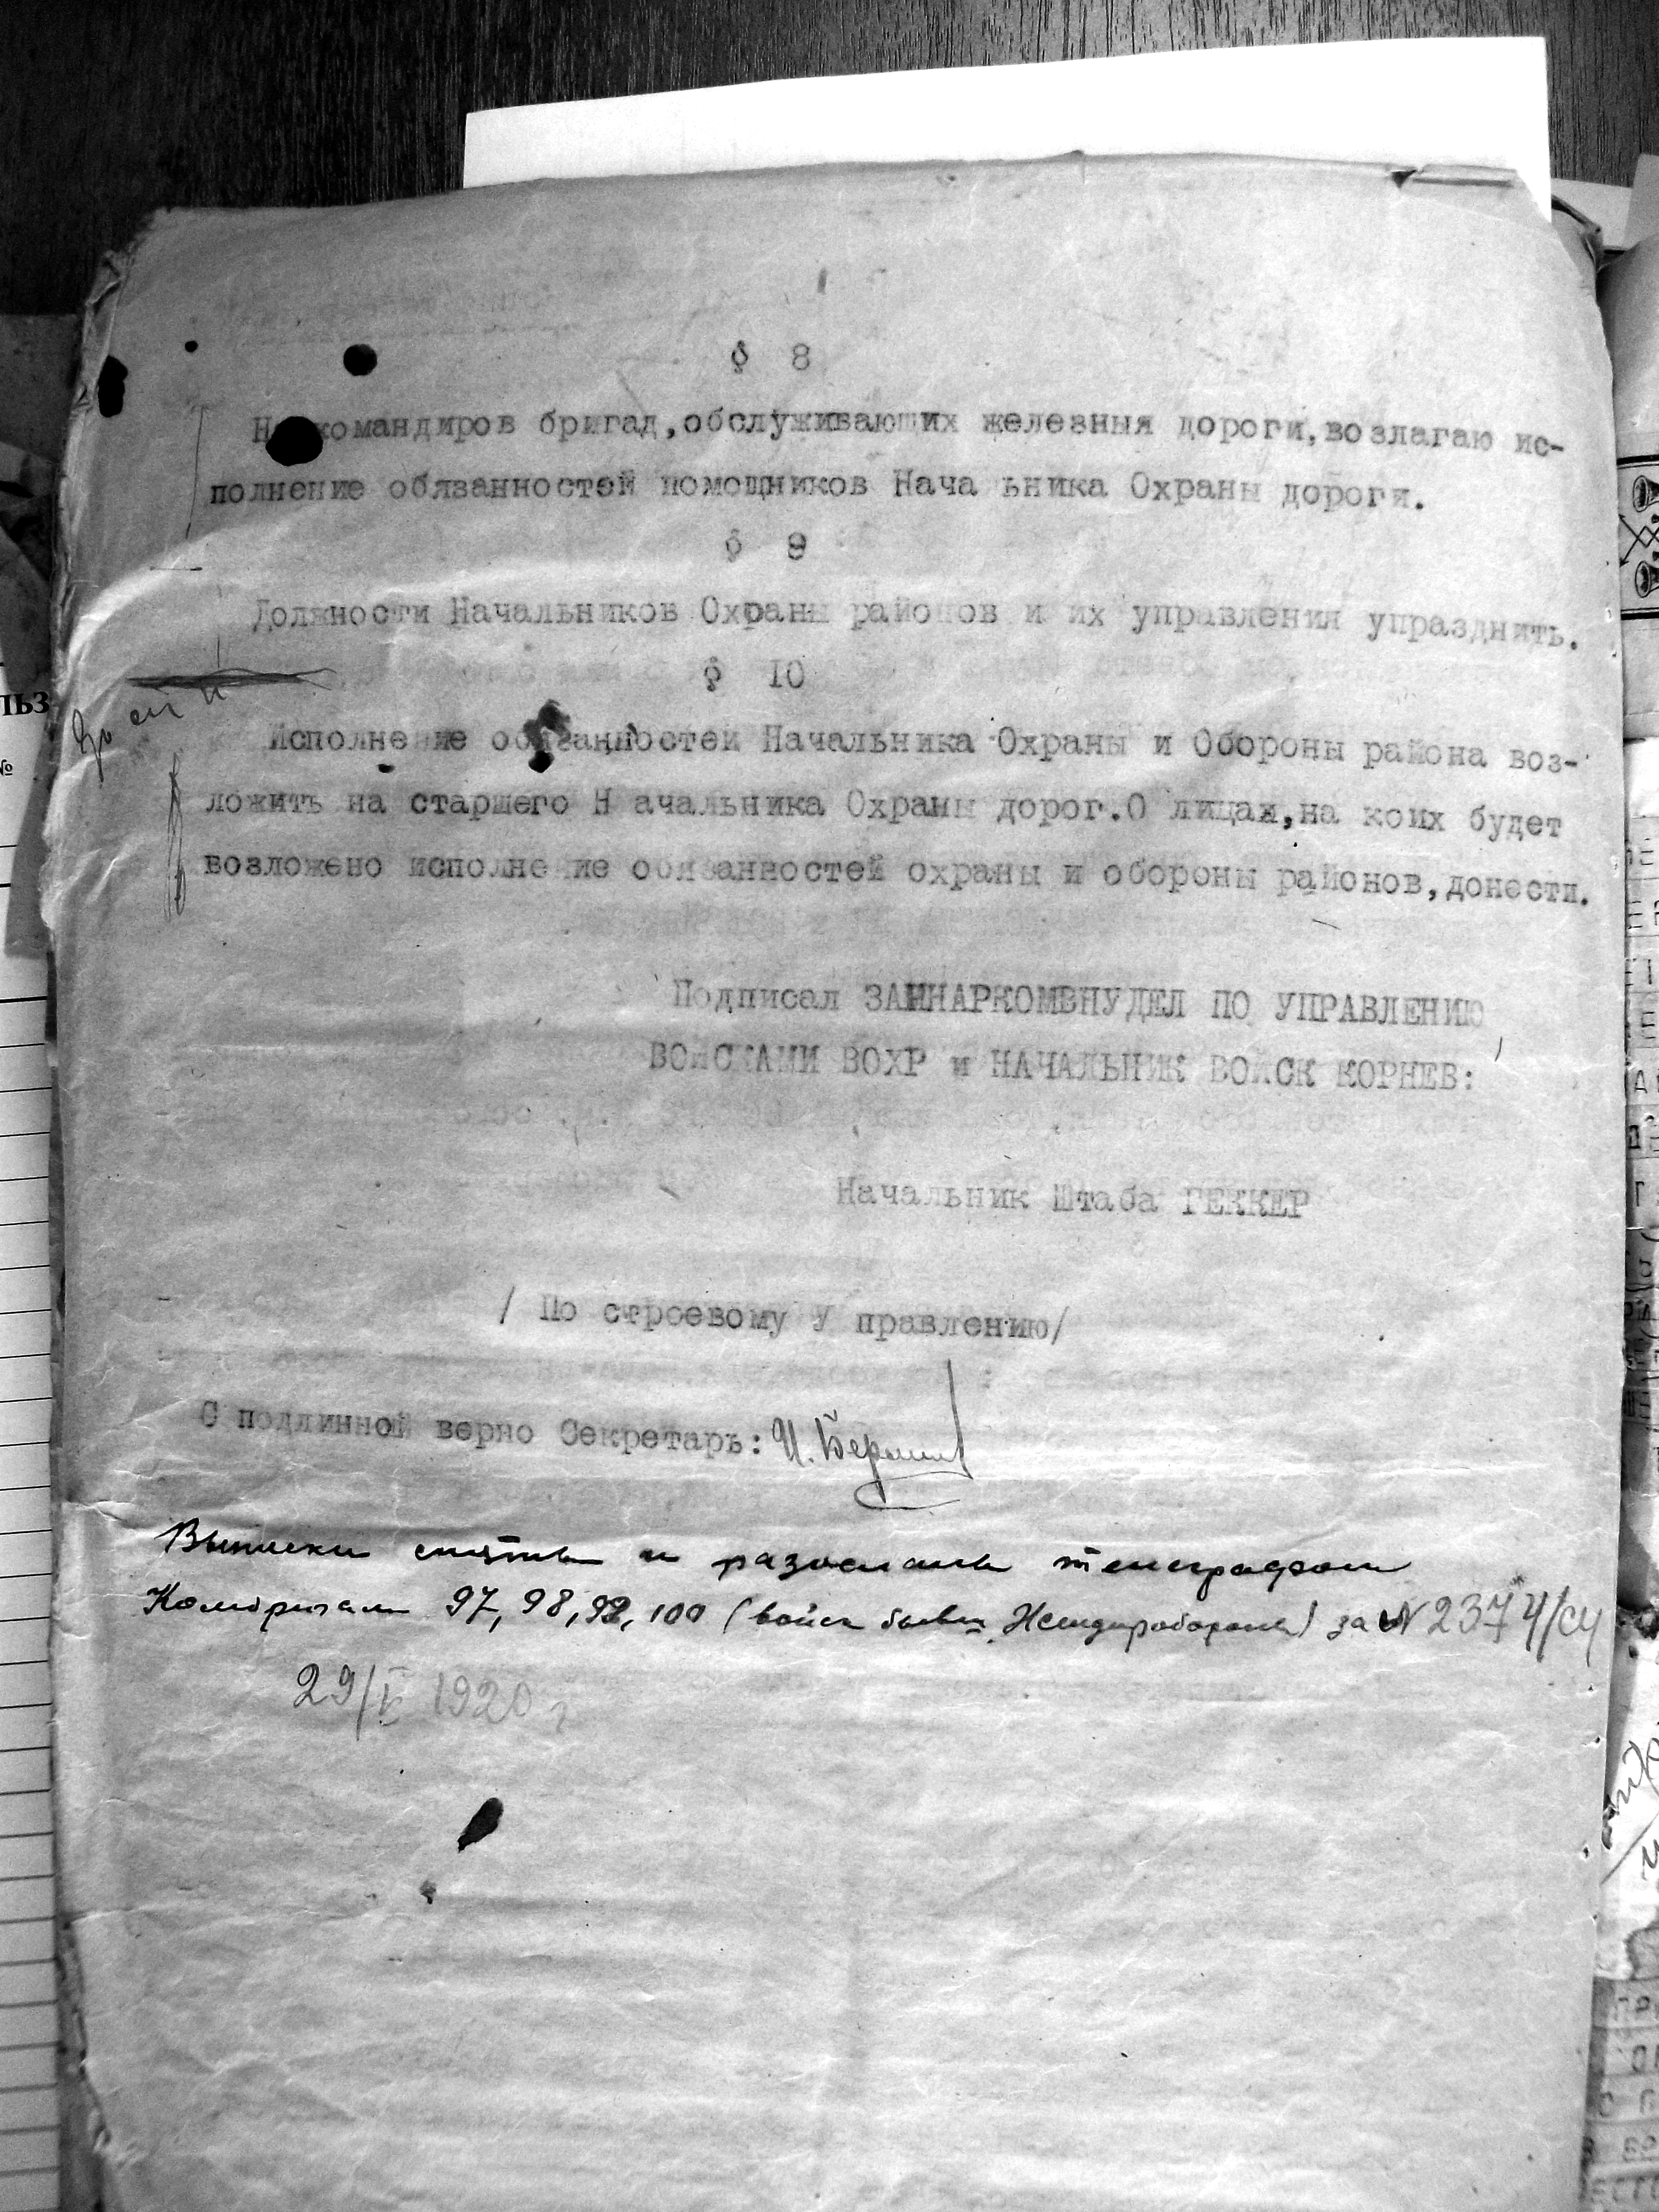 § 8
На командиров бригад,обслуживающих железныя дороги,возлагаю ис-
полнение обязанностей помощников Нача ьника Охраны дороги.
§ 9
Должности Начальников Охраны районов и их управления упразднить.
§ 10
Исполнение обязанностей Начальника Охраны и Обороны района воз-
ложить на старшего Н ачальника Охраны дорог.О лицах,на коих будет
возложено исполнение обязанностей охраны и обороны районов,донести.
Подписал ЗАМНАРКОМВНУДЕЛ ПО УПРАВЛЕНИЮ
ВОЙСКАМИ ВОХР и НАЧАЛЬНИК ВОЙСК КОРНЕВ:
Начальник Штаба ГЕККЕР
/ По строевому У правлению/
С подлинной верно Секретарь: И.
Выписки сняты и разосланы телеграфом
Комбригам 97, 98, 99, 100 (войск бывш. Желдоробороны) за № 2374/сч
29/V 1920 г
ЛЬЗ
№